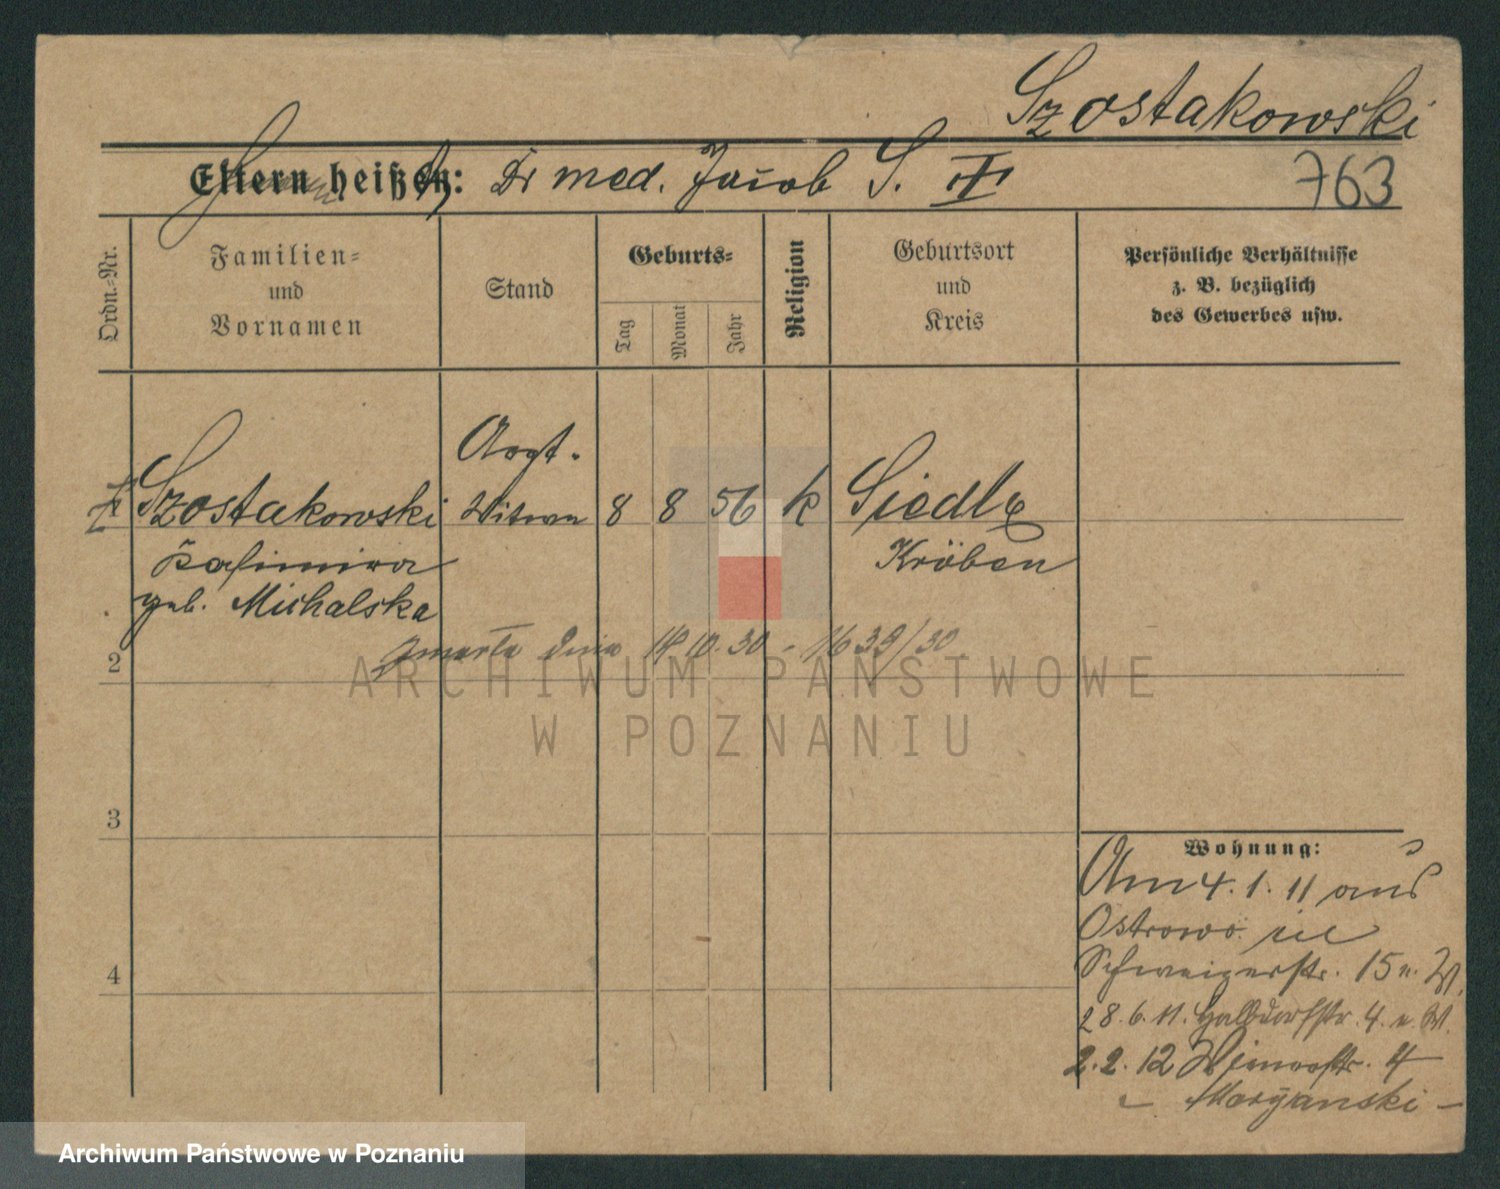 Szostakowski
Eltern heißen: Dr med. Jacob S. III
763
Ordn.-Nr.
Familien-
und
Vornamen
Stand
Geburts-
Tag
Monat
Jahr
Religion
Geburtsort
und
Kreis
Persönliche Verhältnisse
z. B. bezüglich
des Gewerbes usw.
Arzt-
Szostakowski Witwe 8 8 56 k Siedl
Kasimira Kröben
geb. Michalska
zmarła dnia 14 10. 30 - 1639/30
2
3
4
Wohnung:
Am 4. 1. 11 aus
Ostrowo
Schweizerstr. 15 n. W.
28. 6. 11. Halbdorfstr. 4. n. W.
2. 2. 12 4
ARCHIWUM PAŃSTWOWE
W POZNANIU
Archiwum Państwowe w Poznaniu